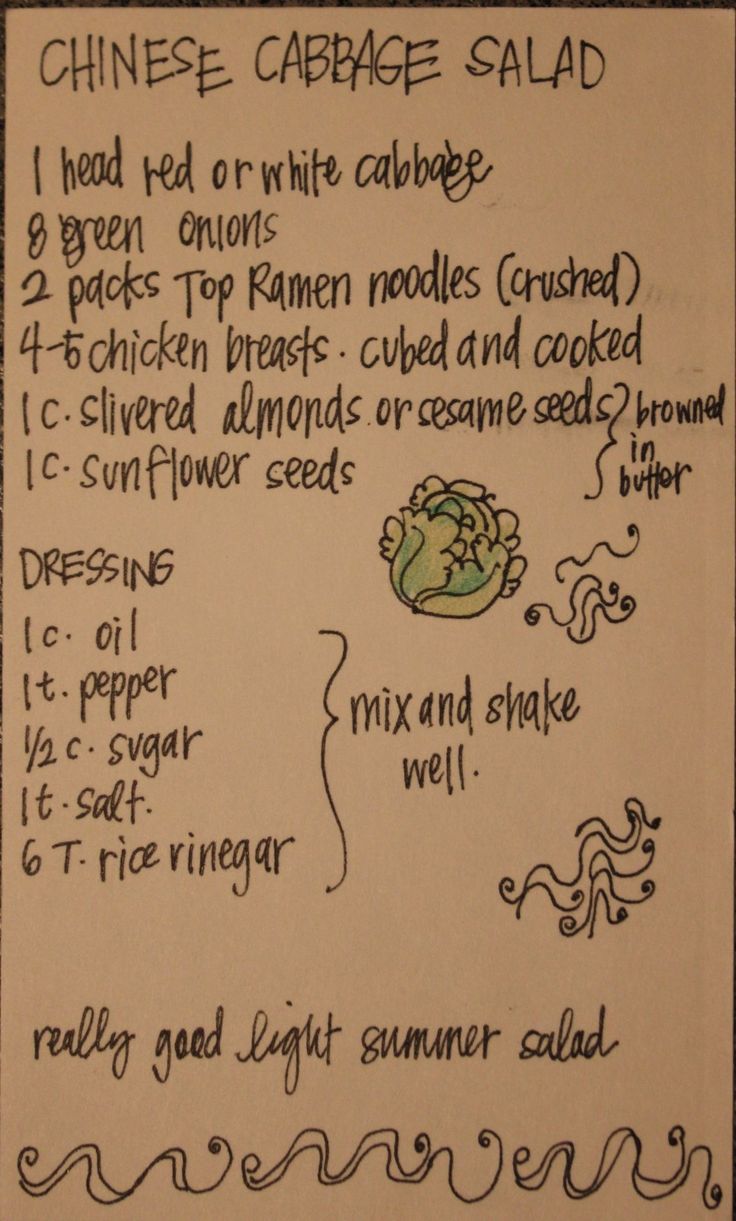 CHINESE CABBAGE SALAD
1 head red or white cabbage
8 green onions
2 packs Top Ramen noodles (crushed)
4-5 chicken breasts. cubed and cooked
1 c. slivered almonds or sesame seeds } browned
1 c. sunflower seeds
in
butter
DRESSING
1 c. oil
1 t. pepper
1/2 c. sugar
1 t. salt.
6 T. rice vinegar
mix and shake
well.
really good light summer salad